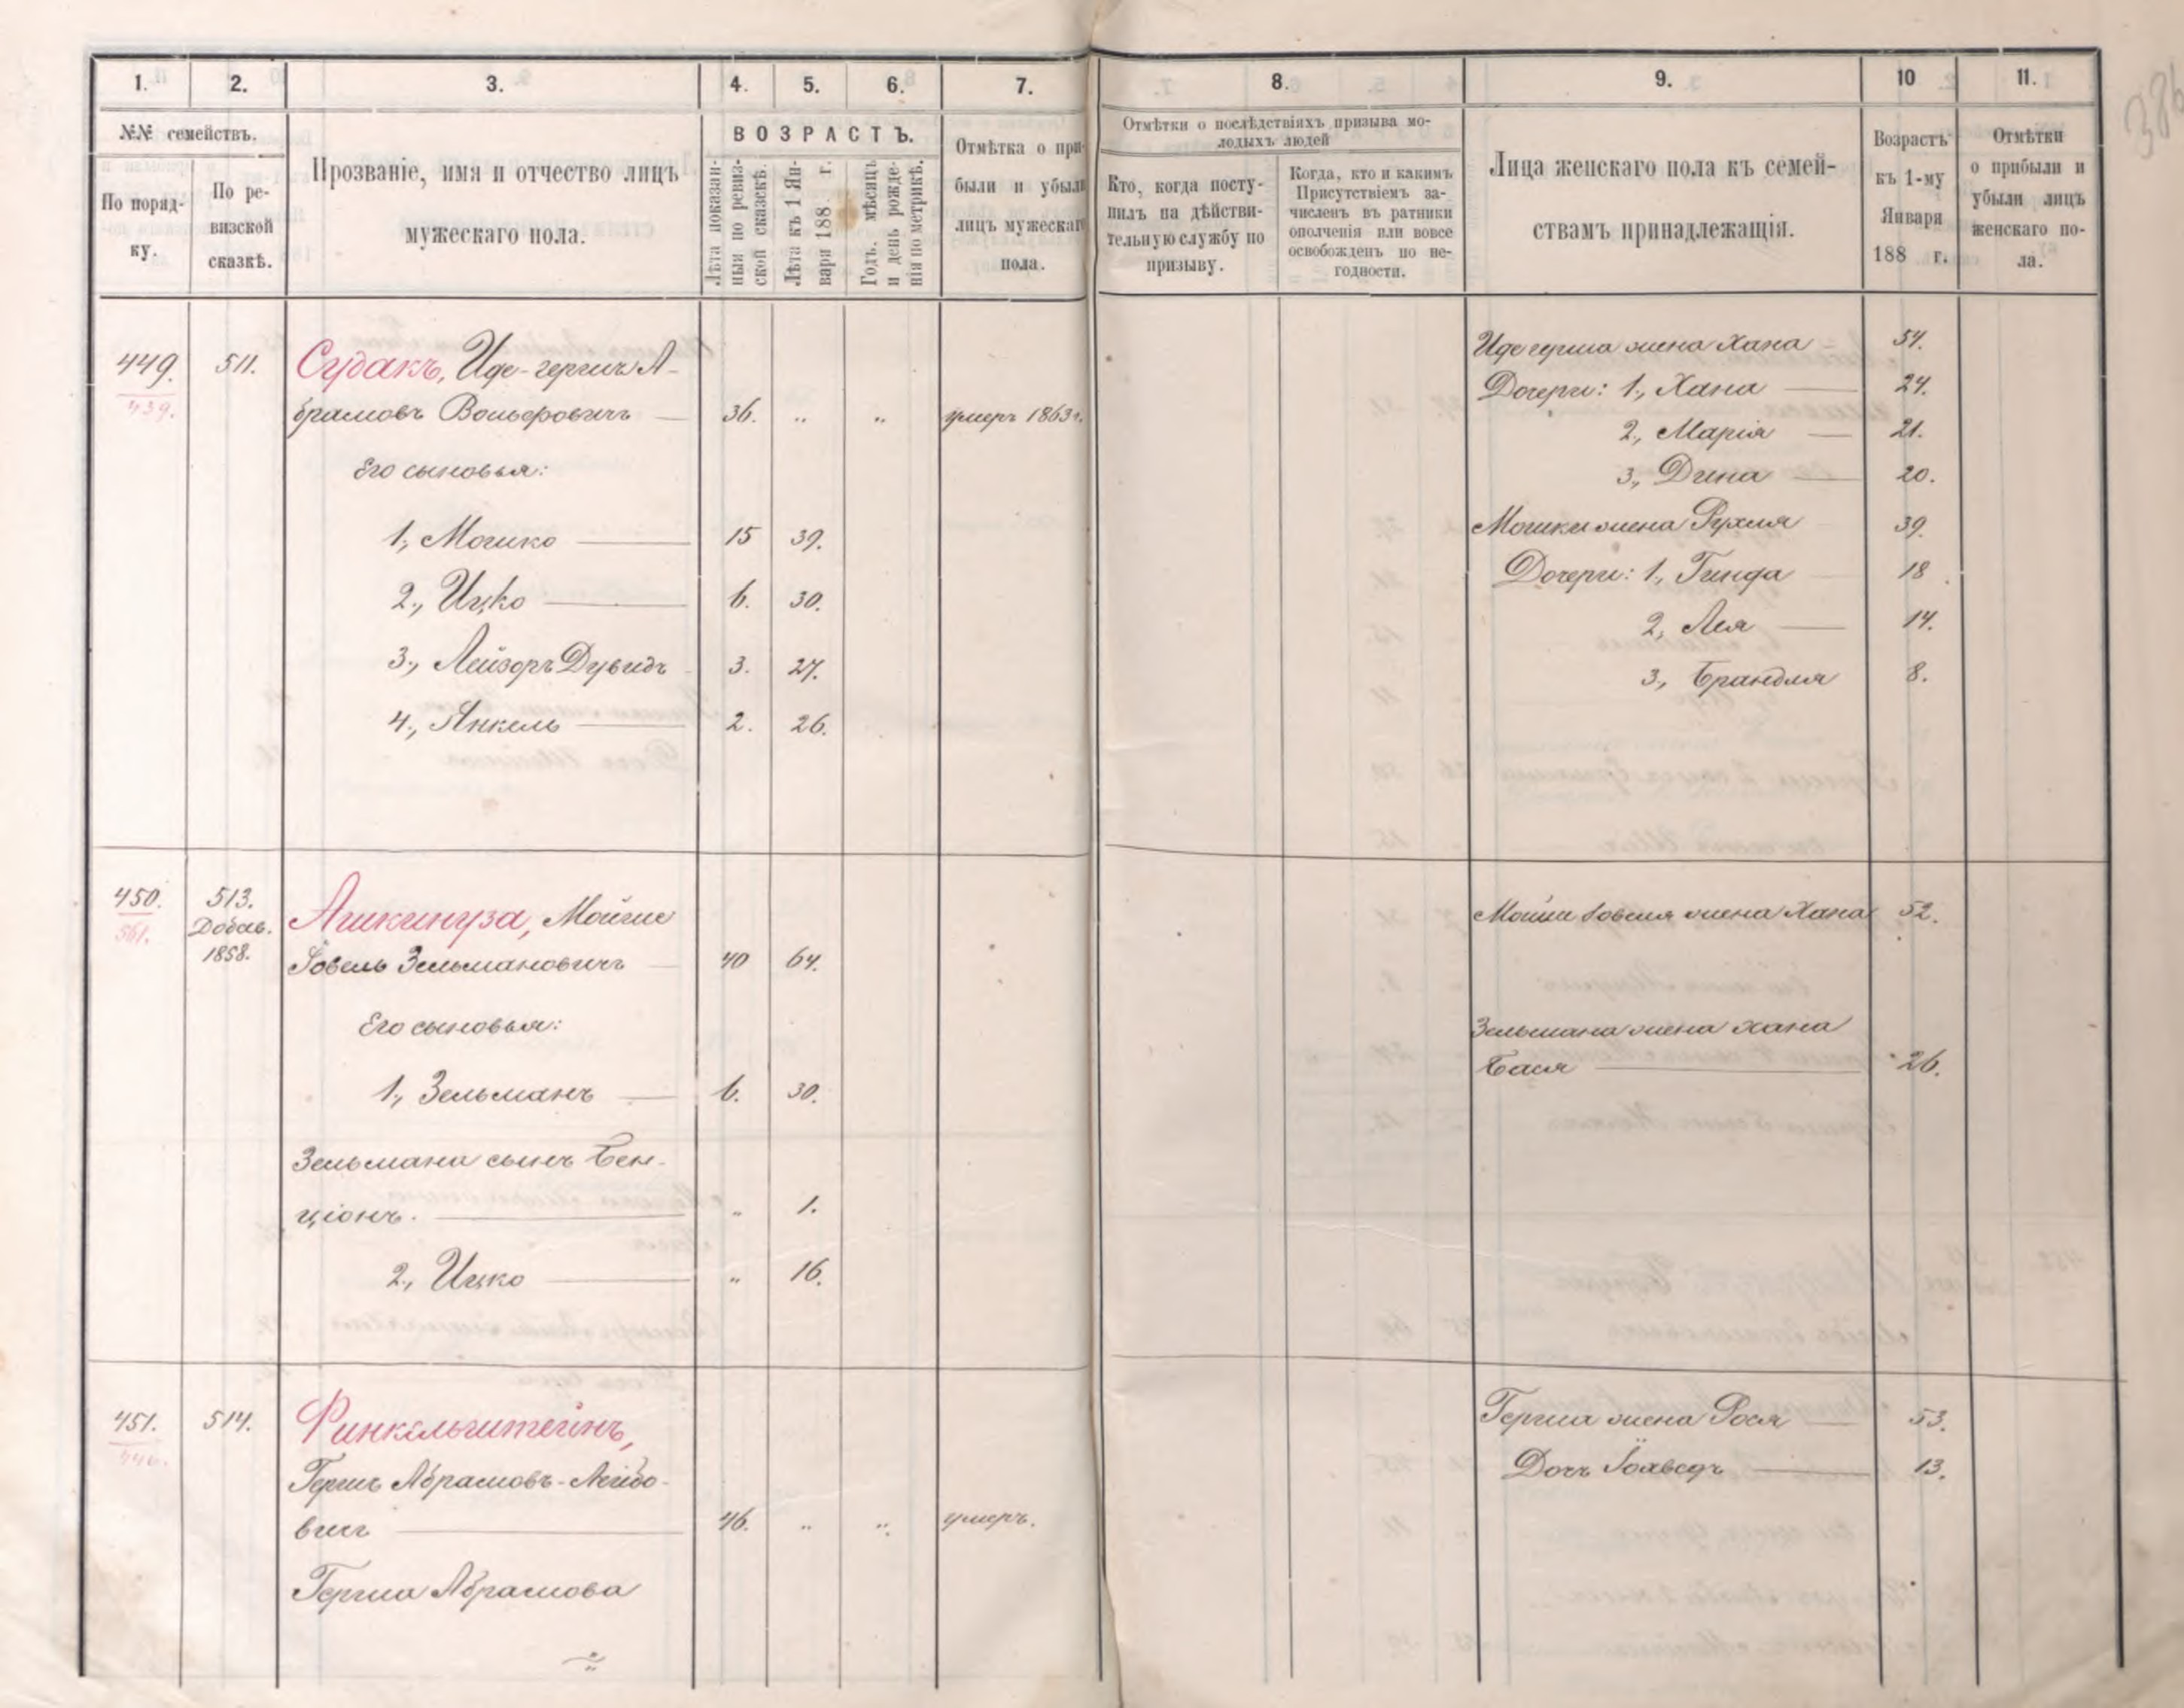 1. 2. 3. 4. 5. 6. 7. 8. 9. 10 11.
№№ семействъ.
По поряд-
ку.
По ре-
визской
сказкѣ.
Прозваніе, имя и отчество лицъ
мужескаго пола.
ВОЗРАСТЪ.
Лѣта показан-
ныя по ревиз-
ской сказкѣ.
Лѣта къ 1 Ян-
варя 188 г.
Годъ, мѣсяцъ
и день рожде-
нія по метрикѣ.
Отмѣтка о при-
были и убыли
лицъ мужескаго
пола.
Отмѣтки о послѣдствіяхъ призыва мо-
лодыхъ людей
Кто, когда посту-
пилъ на дѣйстви-
тельную службу по
призыву.
Когда, кто и какимъ
Присутствіемъ за-
численъ въ ратники
ополченія или вовсе
освобожденъ по не-
годности.
Лица женскаго пола къ семей-
ствамъ принадлежащія.
Возрастъ
къ 1-му
Января
188 г.
Отмѣтки
о прибыли и
убыли лицъ
женскаго по-
ла.
386
449. 511. Судакъ, Иде-гершъ А-
439. брамовъ Вольфовичъ — 36. „ „ умеръ 1863 г.
Его сыновья:
1., Мошко — 15 39.
2., Ицко — 6. 30.
3., Лейзоръ Дувидъ 3. 27.
4., Янкель — 2. 26.
Иде герша жена Хана — 54.
Дочери: 1., Хана — 24.
2., Марія — 21.
3., Дина — 20.
Мошки жена Рухля 39.
Дочери: 1., Гинда 18
2., Лея — 14.
3., Брандля 8.
450. 513. Ашкинуза, Мойше
561. Добав.
1858. Іовель Зельмановичъ — 40 64.
Его сыновья:
1., Зельманъ — 6. 30.
Зельмана сынъ Бен-
ціонъ. — „ 1.
2., Ицко — „ 16.
Мойши Іовеля жена Хана 52.
Зельмана жена Хана
Бася — 26.
451. 514. Финкельштейнъ,
446.
Гершъ Абрамовъ-Лейбо-
вичъ — 46. „ „ умеръ.
Герша Абрамова
Герша жена Рося — 53.
Дочь Іохведъ — 13.